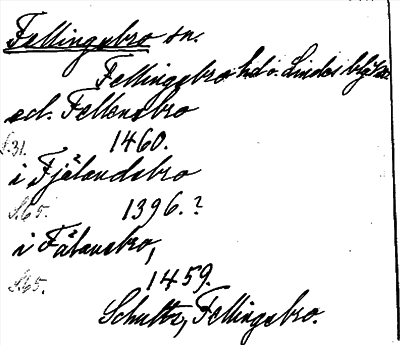 Fellingsbro sn.
Fellingsbro hd o. Lindes blg
ecl. Fellensbro
S.31. 1460.
i Fjälandsbro
S.65. 1396.?
i Fälansbro,
S.65. 1459.
Schultz, Fellingsbro.